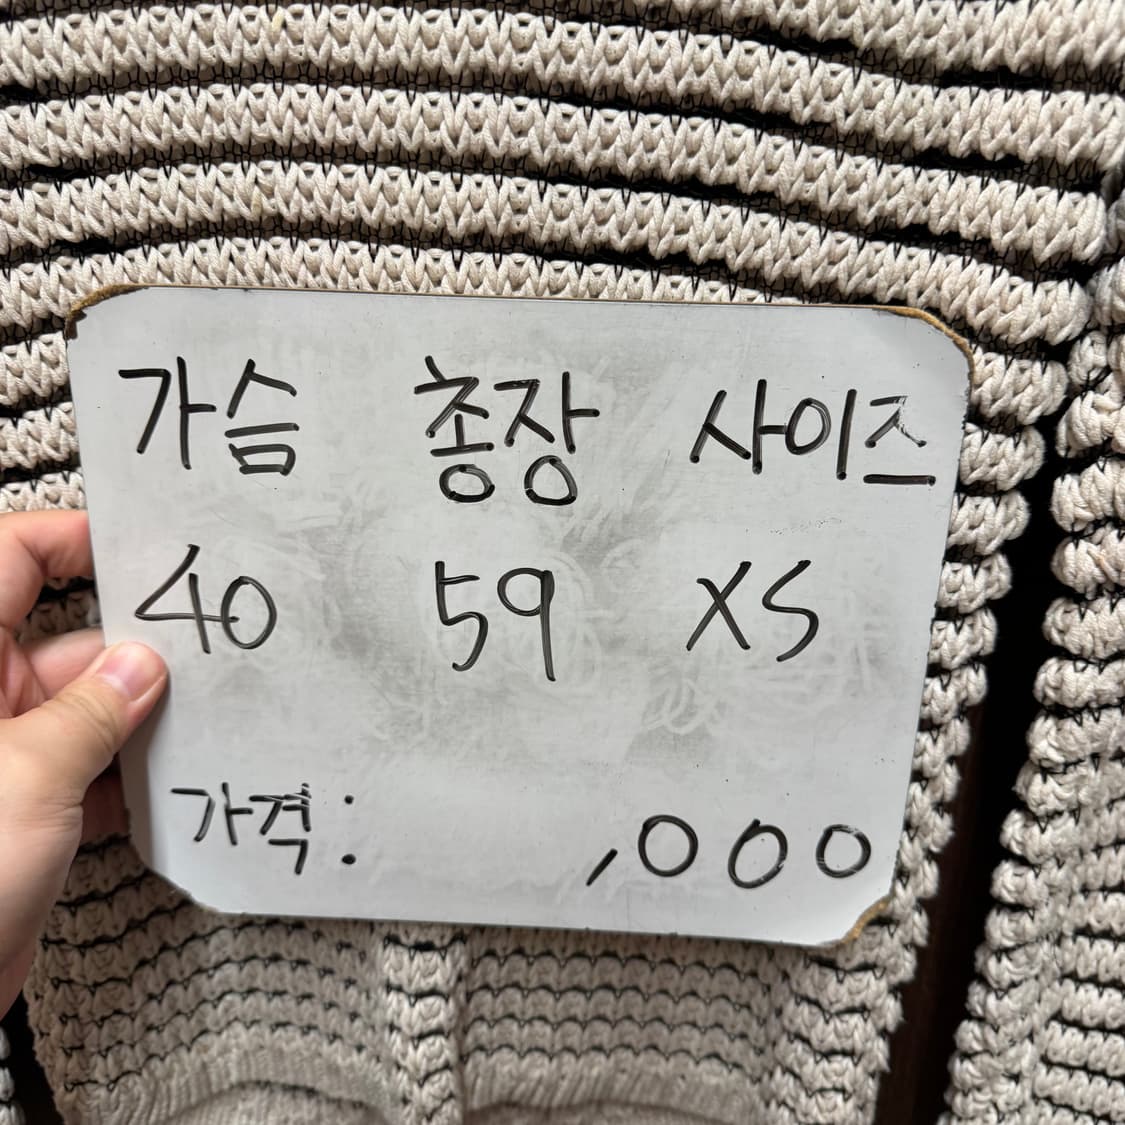 가슴 총장 사이즈
40 59 XS
가격: ,000